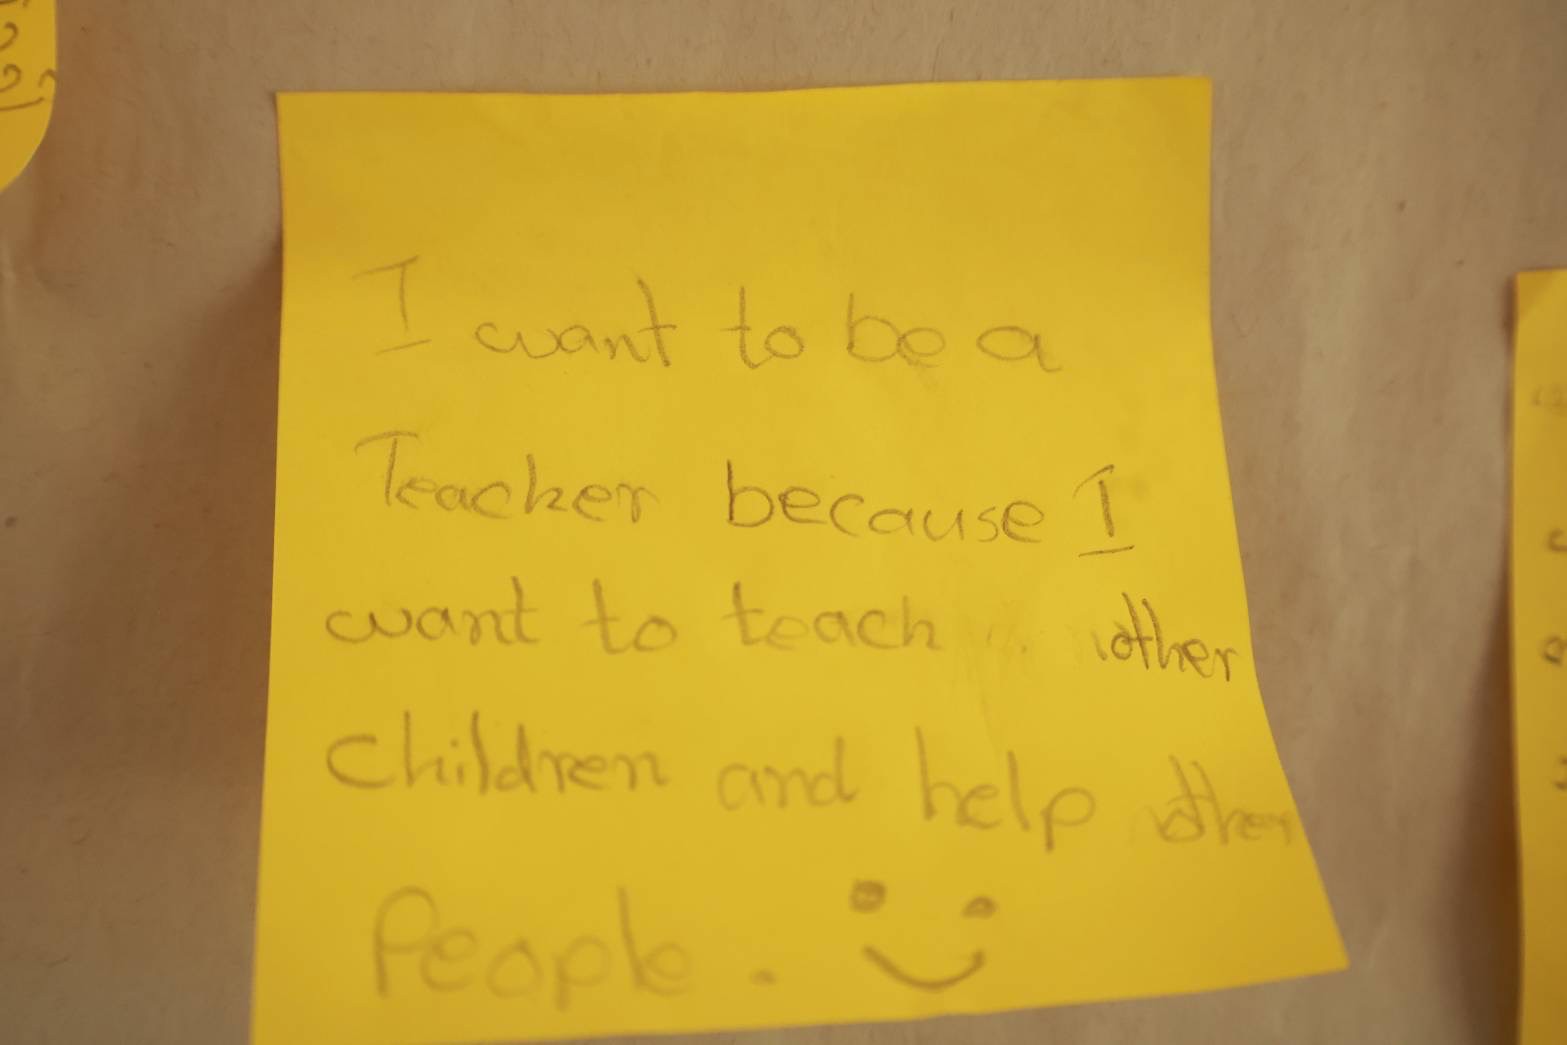 I want to be a
Teacher because I
want to teach other
children and help other
People.